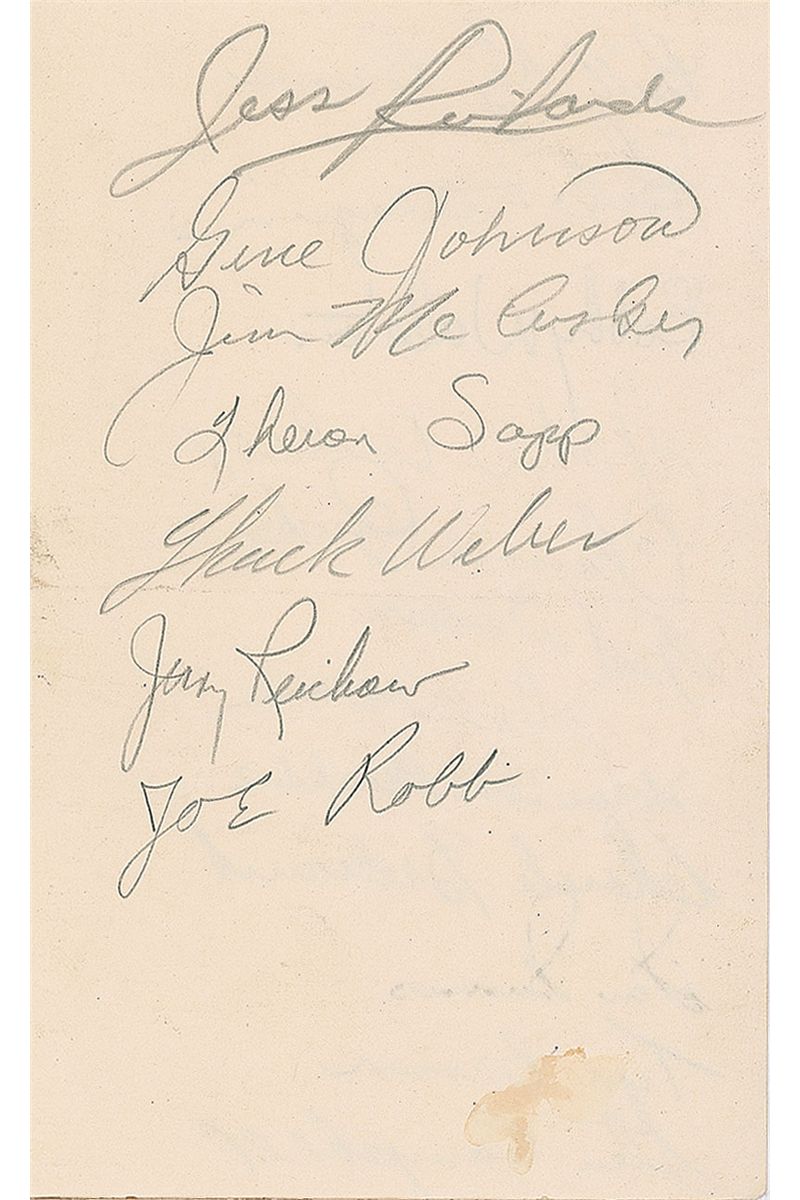 Jess Richards
Gene Johnson
Jim McCusker
Theron Sapp
Chuck Weber
Jerry Reichow
Joe Robb